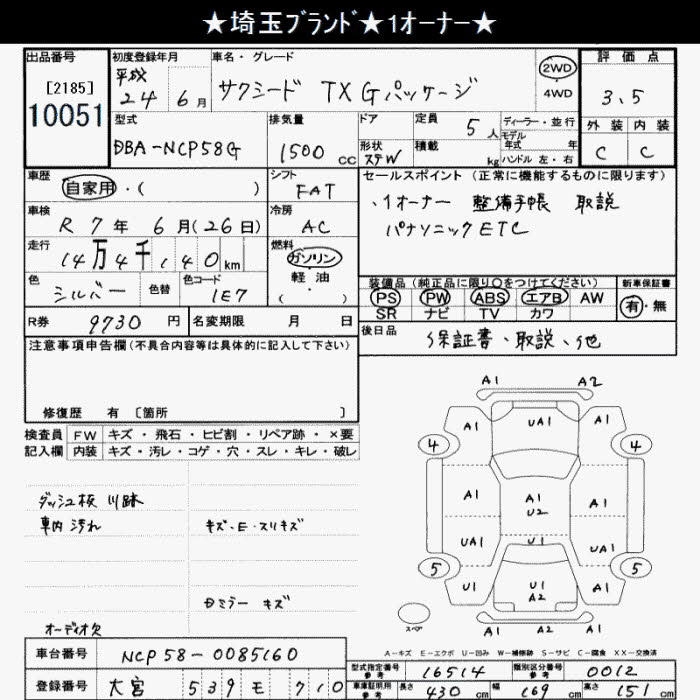 ★埼玉ﾌﾞﾗﾝﾄﾞ★1オーナー★
出品番号
[2185]
10051
初度登録年月
平成
24 6月
車名・グレード
サクシード TX Gパッケージ
2WD
4WD
評価点
3.5
外装 内装
C C
型式
DBA-NCP58G
排気量
1500 cc
ドア
形状
ステW
定員
5人
積載
kg
ディーラー・並行
モデル
年式 年
ハンドル 左・右
車歴
自家用・( )
シフト
FAT
車検
R 7年 6月(26日)
冷房
AC
走行
14万4千140km
燃料
ガソリン
軽油
( )
色
シルバー
色替
色コード
1E7
セールスポイント (正常に機能するものに限ります)
、1オーナー 整備手帳 取説
パナソニックETC
装備品 (純正品に限り○をつけてください)
PS PW ABS エアB AW
SR ナビ TV カワ
新車保証書
有・無
R券 9730円
名変期限 月 日
後日品
保証書、取説、他
注意事項申告欄(不具合内容等は具体的に記入して下さい)
修復歴 有 [箇所 ]
検査員
記入欄
FW キズ・飛石・ヒビ割・リペア跡・×要
内装 キズ・汚レ・コゲ・穴・スレ・キレ・破レ
車内 汚れ
キズ・E・スリキズ
ミラー キズ
オーディオ欠
A1 A2
A1 UA1 A1
4 4
A1 A1 U2 A1
UA1 UA1
5 5
U1 U1 A2 A1
A1 A2
スペア
A-キズ E-エクボ U-凹み W-補修跡 S-サビ C-腐食 XX-交換済
車台番号 NCP58-0085160
登録番号 大宮 539 モ 710
型式指定番号
参考
16514
類別区分番号
参考
0012
車庫証明用
参考
長さ 430cm 幅 169cm 高さ 151cm